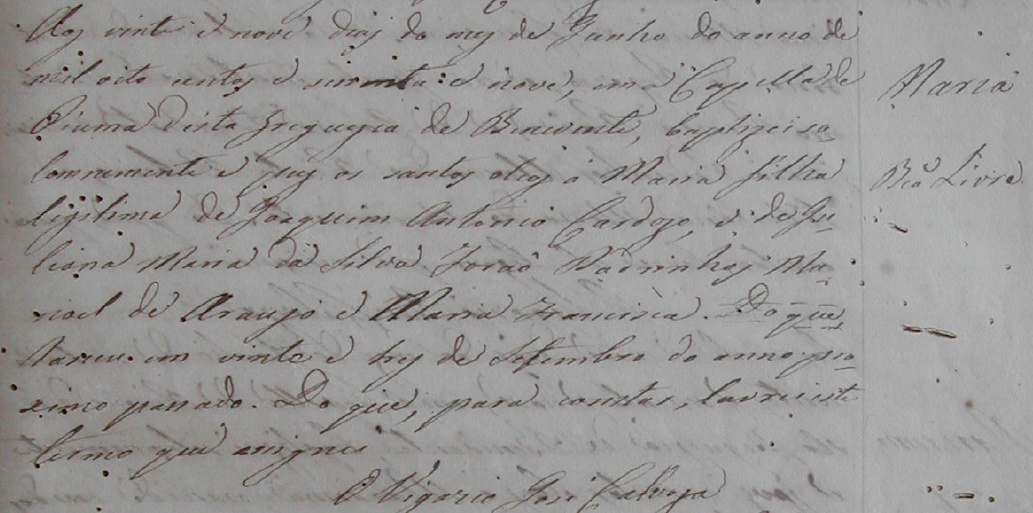 Aos vinte e nove dias do mez de Junho do anno de
mil oito centos e secenta e nove, em a Capella de
Piuma desta freguezia de Benevente, baptizei so
lemnemente e puz os santos oleos a Maria filha
legitima de Joaquim Antonio Cardozo, e de Ju-
liana Maria da Silva Forão Padrinhos Ma-
noel de Araujo e Maria Francisca. Do que
Nasceu em vinte e tres de Setembro do anno pro
ximo passado. Do que, para constar, lavrei este
termo que assignei
O Vigario José
Maria
Livre